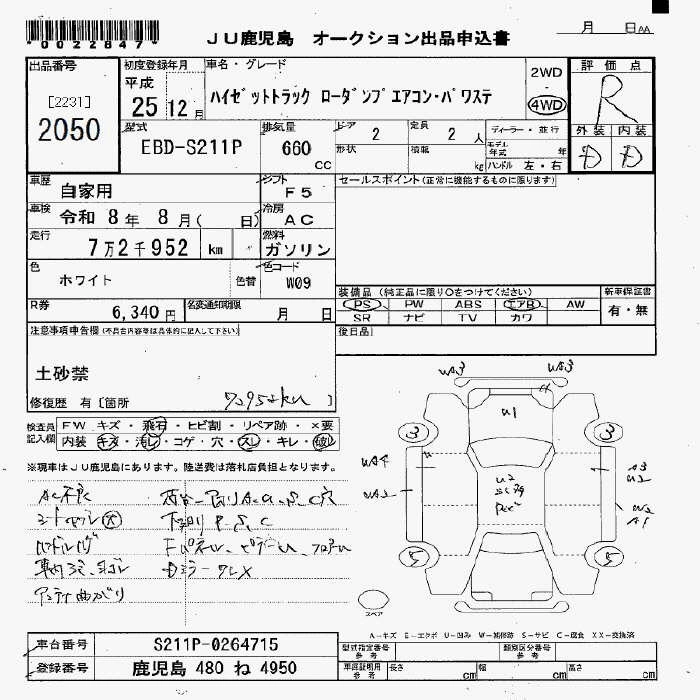 *0022847*
JU鹿児島 オークション出品申込書
月 日 AA
出品番号
[2231]
2050
初度登録年月
平成
25 12 月
車名・グレード
ハイゼットトラック ローダンプ エアコン・パワステ
2WD
・
4WD
評価点
R
外装 内装
D D
型式
EBD-S211P
排気量
660
CC
ドア
2
定員
2 人
形状
積載
kg
ディーラー・並行
モデル年式 年
ハンドル 左・右
車歴
自家用
シフト
F5
車検
令和 8年 8月( 日)
冷房
AC
走行
7万2千952 km
燃料
ガソリン
色
ホワイト
色替
色コード
W09
R券
6,340 円
名変通知期限
月 日
セールスポイント(正常に機能するものに限ります)
装備品(純正品に限り○をつけてください)
PS PW ABS エアB AW
SR ナビ TV カワ
新車保証書
有・無
後日品
注意事項申告欄(不具合内容等は具体的に記入して下さい)
土砂禁
修復歴 有[箇所 72952km ]
検査員記入欄
FW キズ・飛石・ヒビ割・リペア跡・×要
内装 キズ・汚レ・コゲ・穴・スレ・キレ・破レ
※現車はJU鹿児島にあります。陸送費は落札店負担となります。
AC不良
アンテナ曲がり
UA3 UA3
U1
3 3
UA4
UA2
U2
A3
U2
A1
5 5
スペア
A−キズ E−エクボ U−凹み W−補修跡 S−サビ C−腐食 XX−交換済
車台番号 S211P-0264715
登録番号 鹿児島 480 ね 4950
型式指定番号 参考
類別区分番号 参考
車庫証明用 参考
長さ cm
幅 cm
高さ cm